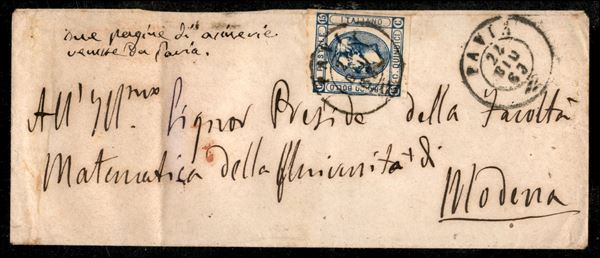 due pagine di
venute da Pavia.
ITALIANO
BOLLO
PAVIA
22
GIU
63
All'Ill.mo Signor Preside della Facoltà
Matematica della Università di
Modena